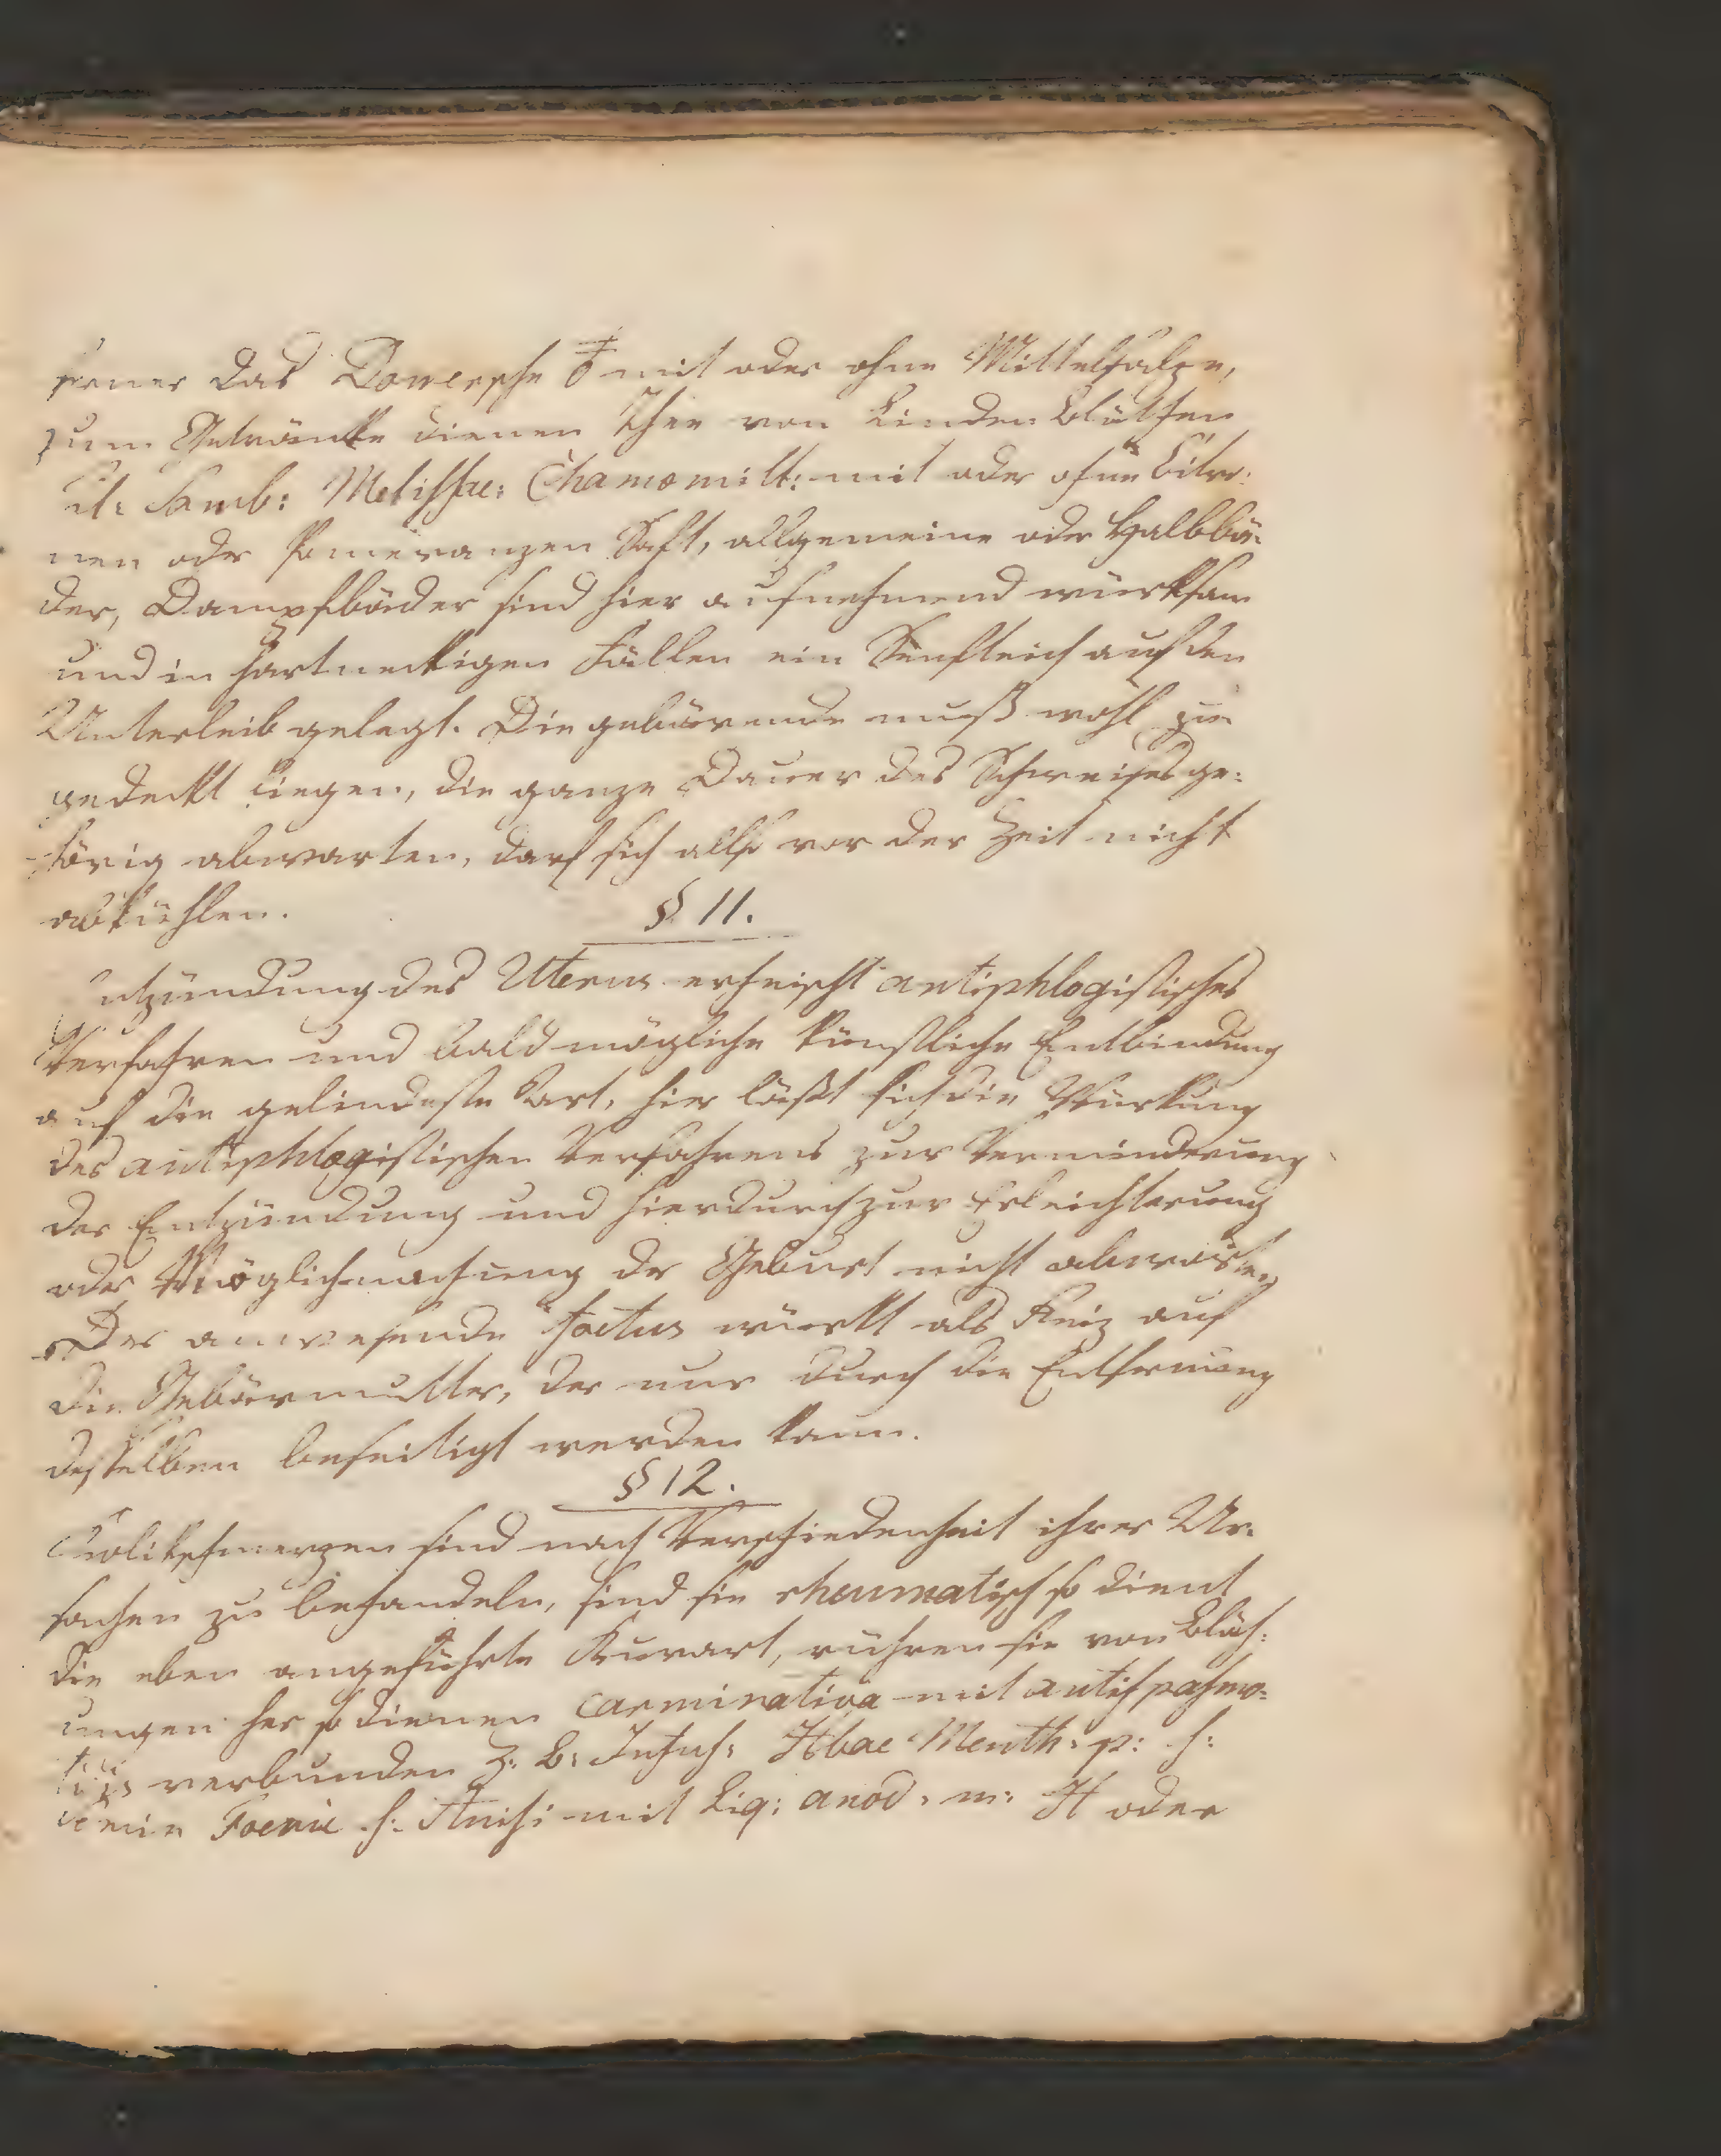 ferner das Dowersche ♁ mit oder ohne Mittelsalze,
zum Getränke dienen Thee von Linden Blüthen
fl: Samb: Melissae: Chamomill: mit oder ohne Citro:
nen oder Pomeranzen Saft, allgemeine oder Halbbä:
der, Dampfbäder sind hier ausnehmend würksam
und in hartneckigen Fällen ein Senfteich auf den
Unterleib gelegt. Die gebärende muß wohl zu
gedeckt liegen, die ganze Dauer des Schweises ge:
hörig abwarten, darf sich allso vor der Zeit nicht
abkühlen.
§ 11.
ntzündung des Uterus erheischt antiphlogistisches
Verfahren und bald mögliche künstliche Entbindung
auf die gelindeste Art, hier läßt sich die Würkung
des antiphlogistischen Verfahrens zur Verminderung
der Entzündung und hierdurch zur Erleichterung
oder Möglichmachung der Geburt nicht abwarten
Der anwesende Foetus würkt als Reiz auf
die Gebärmutter, der nur durch die Entfernung
desselben beseitigt werden kann.
§ 12.
Kolikschmerzen sind nach Verschiedenheit ihrer Ur:
sachen zu behandeln, sind sie rheumatisch so dient
die eben angeführte Kurart, rühren sie von Bläh:
ungen her so dienen Carminativa mit antispasmo:
ticis verbunden z: B: Infus: Hbae Menth: p: s:
Foenic s: Anisi mit Liq: anod: m: H oder